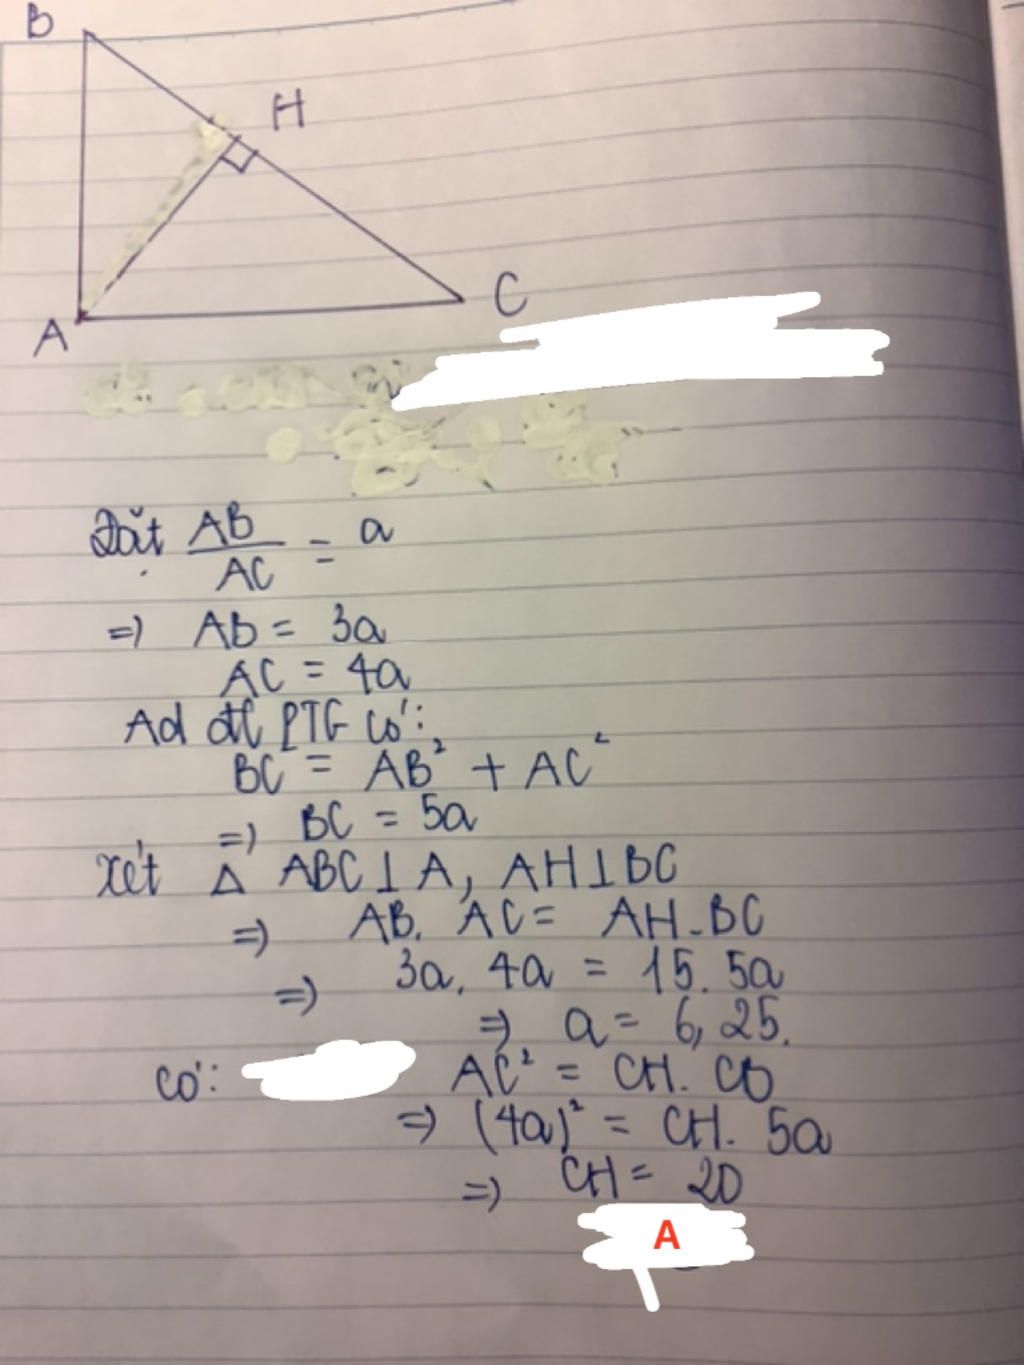 B
H
C
A
Đặt AB/AC = a
=> Ab = 3a
AC = 4a
Ad đl PTG có:
BC = AB² + AC²
=> BC = 5a
Xét Δ ABC ⊥ A, AH ⊥ BC
=> AB. AC = AH.BC
=> 3a. 4a = 15. 5a
=> a = 6,25.
Có: AC² = CH. CB
=> (4a)² = CH. 5a
=> CH = 20
A